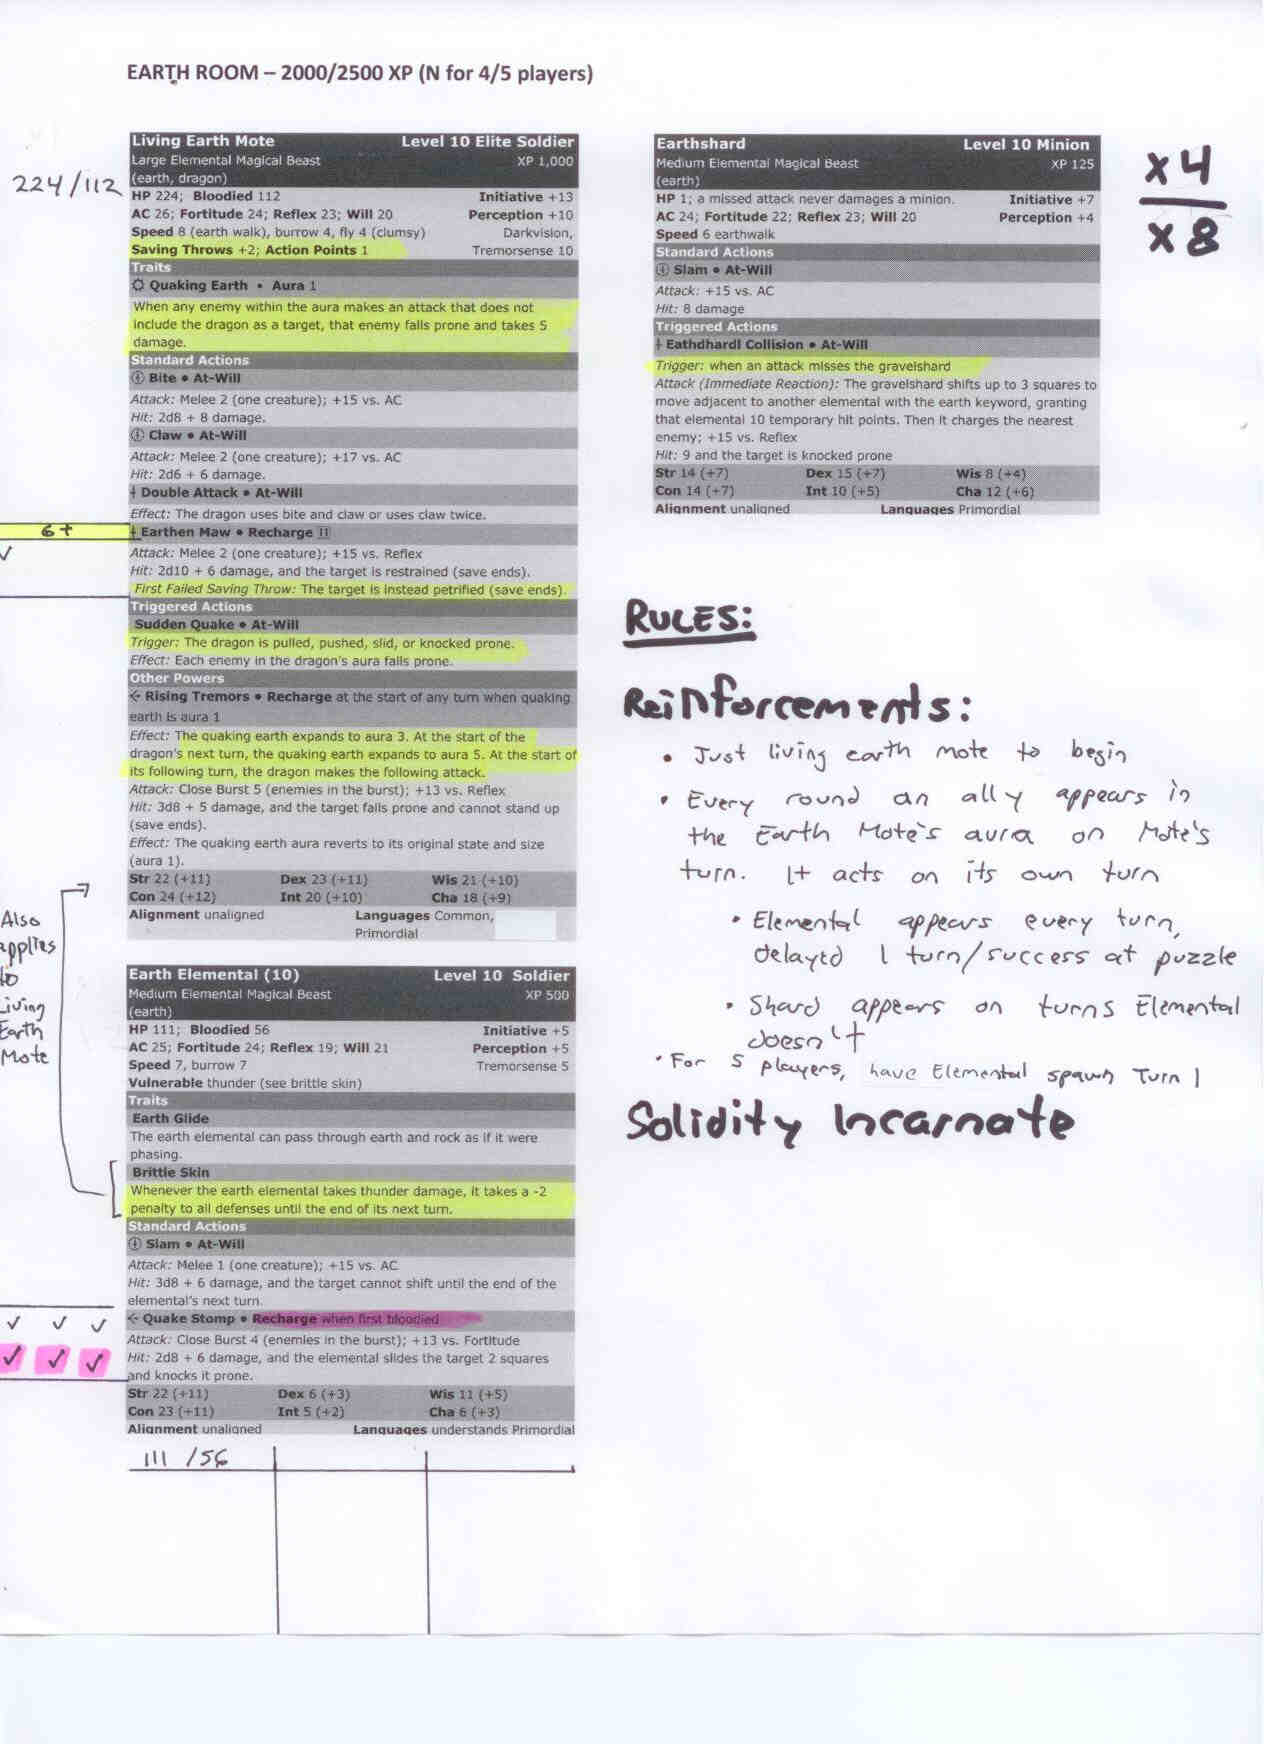 EARTH ROOM – 2000/2500 XP (N for 4/5 players)
224/112
Living Earth Mote Level 10 Elite Soldier
Large Elemental Magical Beast XP 1,000
(earth, dragon)
HP 224; Bloodied 112 Initiative +13
AC 26; Fortitude 24; Reflex 23; Will 20 Perception +10
Speed 8 (earth walk), burrow 4, fly 4 (clumsy) Darkvision,
Saving Throws +2; Action Points 1 Tremorsense 10
Traits
Quaking Earth • Aura 1
When any enemy within the aura makes an attack that does not
include the dragon as a target, that enemy falls prone and takes 5
damage.
Standard Actions
Bite • At-Will
Attack: Melee 2 (one creature); +15 vs. AC
Hit: 2d8 + 8 damage.
Claw • At-Will
Attack: Melee 2 (one creature); +17 vs. AC
Hit: 2d6 + 6 damage.
Double Attack • At-Will
Effect: The dragon uses bite and claw or uses claw twice.
6+
✓
Earthen Maw • Recharge
Attack: Melee 2 (one creature); +15 vs. Reflex
Hit: 2d10 + 6 damage, and the target is restrained (save ends).
First Failed Saving Throw: The target is instead petrified (save ends).
Triggered Actions
Sudden Quake • At-Will
Trigger: The dragon is pulled, pushed, slid, or knocked prone.
Effect: Each enemy in the dragon's aura falls prone.
Other Powers
Rising Tremors • Recharge at the start of any turn when quaking
earth is aura 1
Effect: The quaking earth expands to aura 3. At the start of the
dragon's next turn, the quaking earth expands to aura 5. At the start of
its following turn, the dragon makes the following attack.
Attack: Close Burst 5 (enemies in the burst); +13 vs. Reflex
Hit: 3d8 + 5 damage, and the target falls prone and cannot stand up
(save ends).
Effect: The quaking earth aura reverts to its original state and size
(aura 1).
Str 22 (+11) Dex 23 (+11) Wis 21 (+10)
Con 24 (+12) Int 20 (+10) Cha 18 (+9)
Alignment unaligned Languages Common,
Primordial
Also
applies
to
Living
Earth
Mote
Earth Elemental (10) Level 10 Soldier
Medium Elemental Magical Beast XP 500
(earth)
HP 111; Bloodied 56 Initiative +5
AC 25; Fortitude 24; Reflex 19; Will 21 Perception +5
Speed 7, burrow 7 Tremorsense 5
Vulnerable thunder (see brittle skin)
Traits
Earth Glide
The earth elemental can pass through earth and rock as if it were
phasing.
Brittle Skin
Whenever the earth elemental takes thunder damage, it takes a -2
penalty to all defenses until the end of its next turn.
Standard Actions
Slam • At-Will
Attack: Melee 1 (one creature); +15 vs. AC
Hit: 3d8 + 6 damage, and the target cannot shift until the end of the
elemental's next turn.
✓ ✓ ✓
✓ ✓ ✓
Quake Stomp • Recharge when first bloodied
Attack: Close Burst 4 (enemies in the burst); +13 vs. Fortitude
Hit: 2d8 + 6 damage, and the elemental slides the target 2 squares
and knocks it prone.
Str 22 (+11) Dex 6 (+3) Wis 11 (+5)
Con 23 (+11) Int 5 (+2) Cha 6 (+3)
Alignment unaligned Languages understands Primordial
111 /56
Earthshard Level 10 Minion
Medium Elemental Magical Beast XP 125
(earth)
HP 1; a missed attack never damages a minion. Initiative +7
AC 24; Fortitude 22; Reflex 23; Will 20 Perception +4
Speed 6 earthwalk
Standard Actions
Slam • At-Will
Attack: +15 vs. AC
Hit: 8 damage
Triggered Actions
Eathdhardl Collision • At-Will
Trigger: when an attack misses the gravelshard
Attack (Immediate Reaction): The gravelshard shifts up to 3 squares to
move adjacent to another elemental with the earth keyword, granting
that elemental 10 temporary hit points. Then it charges the nearest
enemy; +15 vs. Reflex
Hit: 9 and the target is knocked prone
Str 14 (+7) Dex 15 (+7) Wis 8 (+4)
Con 14 (+7) Int 10 (+5) Cha 12 (+6)
Alignment unaligned Languages Primordial
x4
x8
RULES:
Reinforcements:
• Just living earth mote to begin
• Every round an ally appears in
the Earth Mote's aura on Mote's
turn. It acts on its own turn
• Elemental appears every turn,
delayed 1 turn/success at puzzle
• Shard appears on turns Elemental
doesn't
• For 5 players, have Elemental spawn Turn 1
Solidity Incarnate